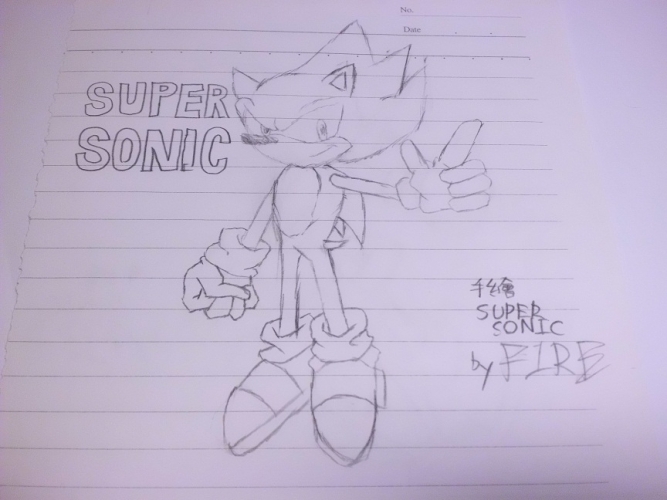 No.
Date
SUPER
SONIC
手繪
SUPER
SONIC
by FIRE